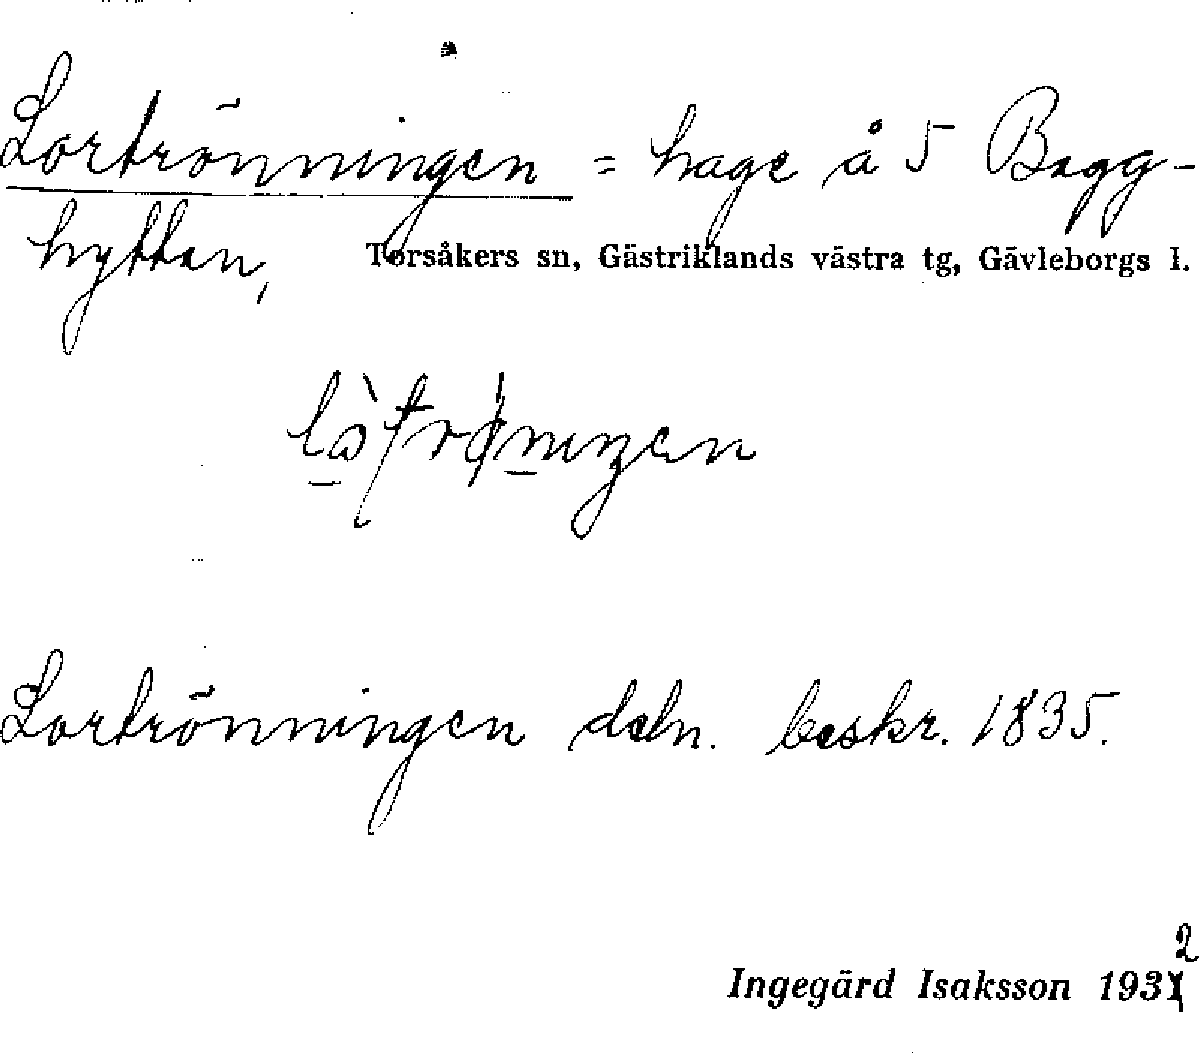 Lortrönningen = hage å 5 Bagg-
hyttan, Torsåkers sn, Gästriklands västra tg, Gävleborgs l.
Lortrönningen deln. beskr. 1835.
2
Ingegärd Isaksson 1931